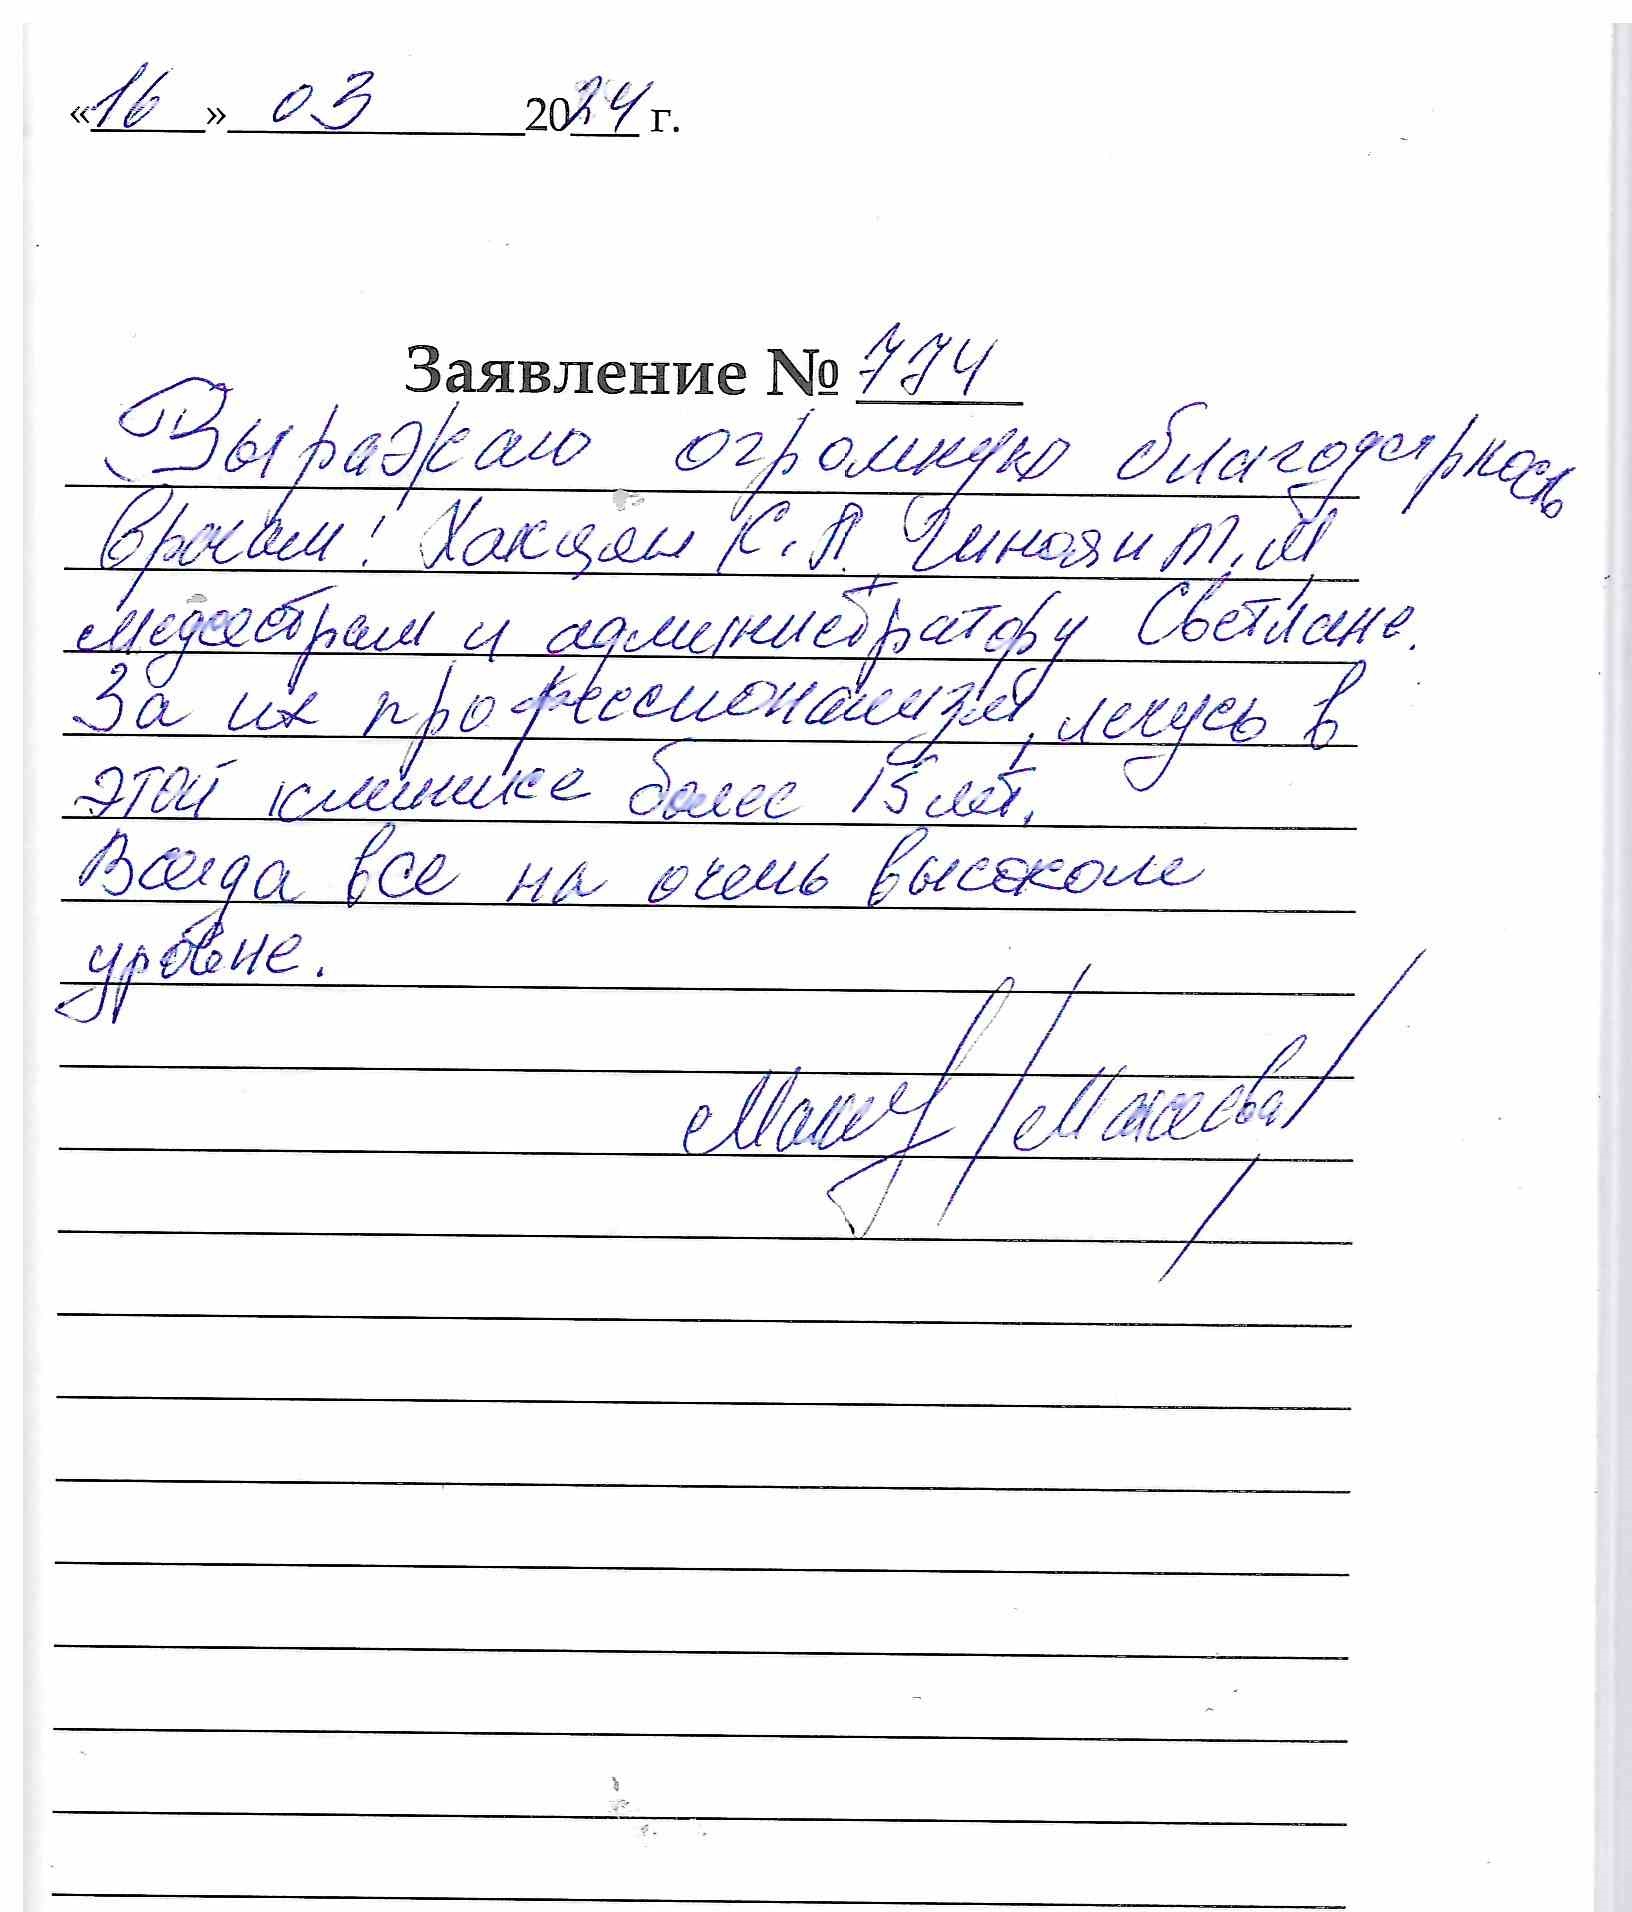 «16» 03 2024 г.
Заявление № 774
Выражаю огромную благодарность
врачам! Хакцян К. П.
медсестрам и администратору Светлане.
За их профессионализм, лечусь в
этой клинике более 15 лет.
Всегда все на очень высоком
уровне.